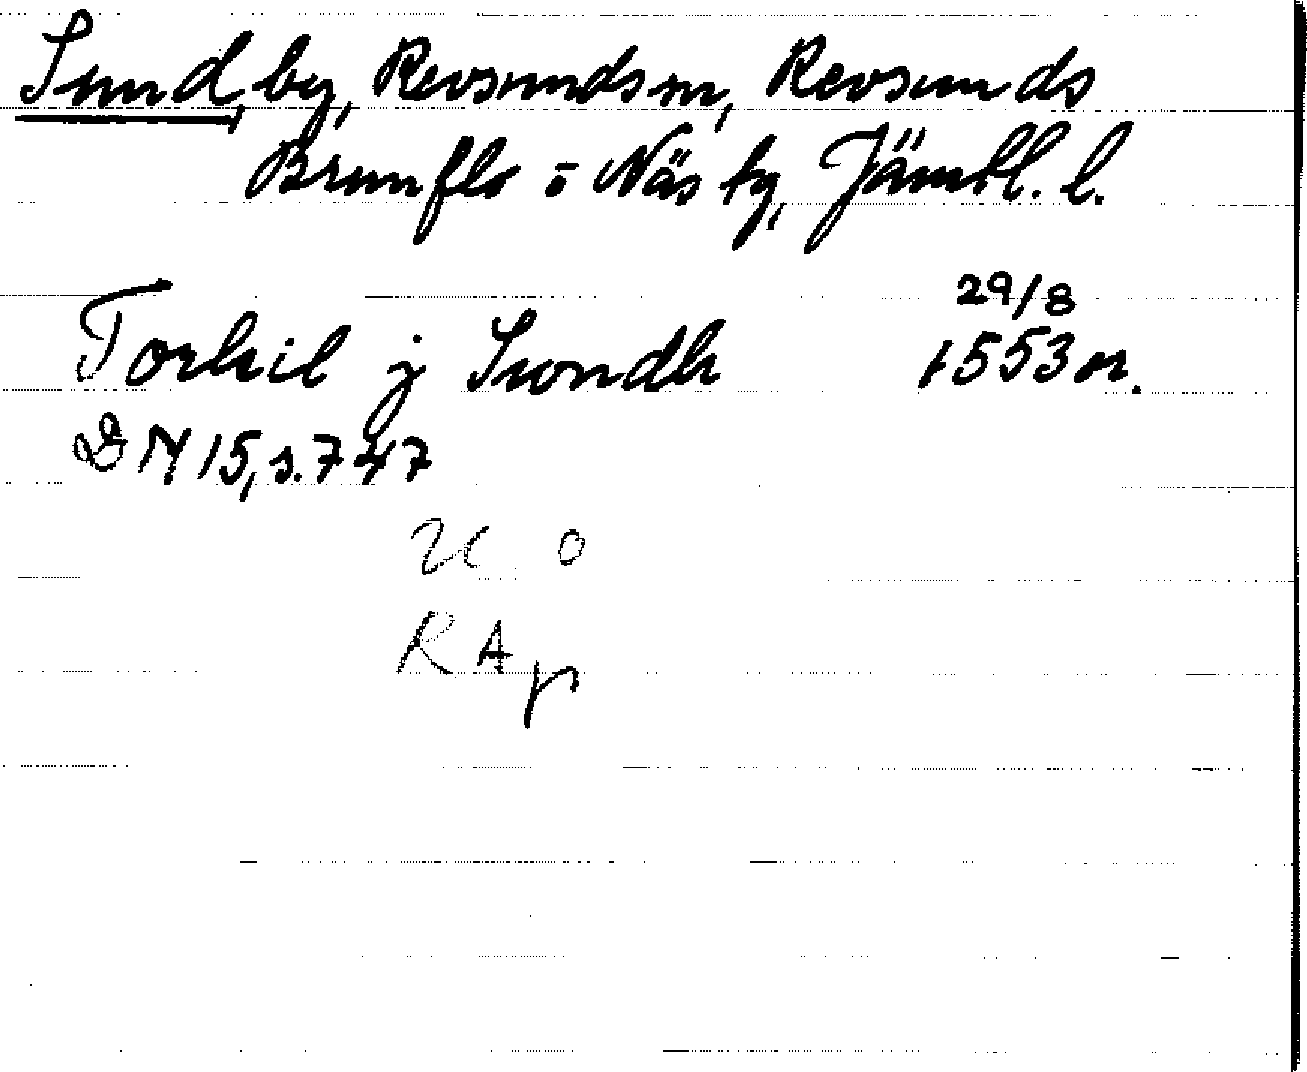 Sund, by, Revsunds sn, Revsunds
Brunflo o Näs tg, Jämtl. l.
29/8
Torkil j Swndh 1553 or.
DN 15, s. 747
U O
RA